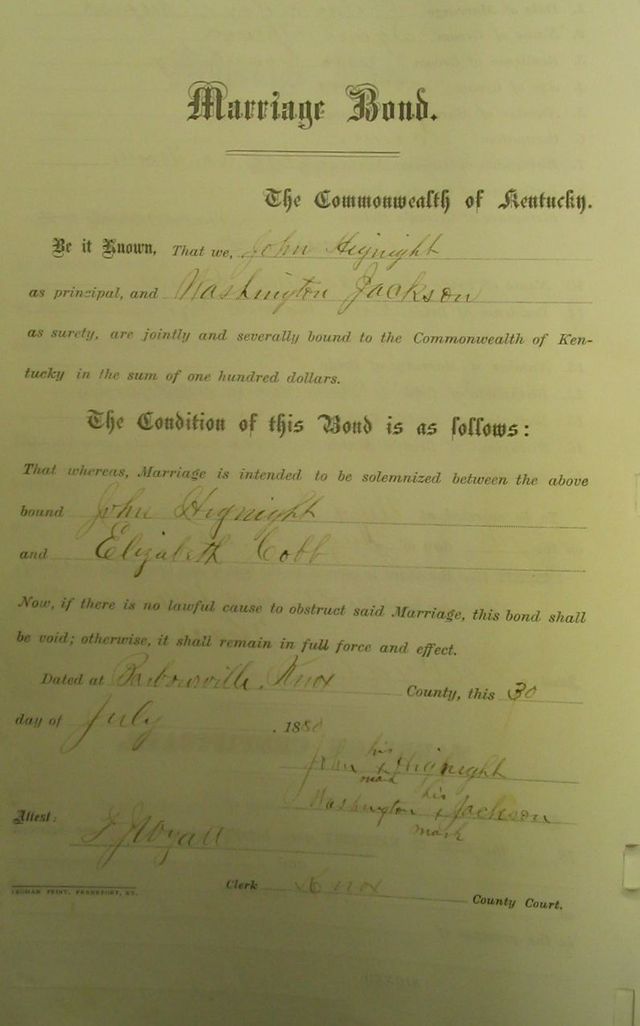 Marriage Bond.
The Commonwealth of Kentucky.
Be it Known, That we, John Hignight
as principal, and Washington Jackson
as surety, are jointly and severally bound to the Commonwealth of Ken-
tucky in the sum of one hundred dollars.
The Condition of this Bond is as follows:
That whereas, Marriage is intended to be solemnized between the above
bound John Hignight
and Elizabeth Cobb
Now, if there is no lawful cause to obstruct said Marriage, this bond shall
be void; otherwise, it shall remain in full force and effect.
Dated at Barbourville, Knox County, this 30
day of July, 1880
his
John x Hignight
mark
his
Washington x Jackson
mark
Attest:
Clerk Knox County Court.
YEOMAN PRINT, FRANKFORT, KY.